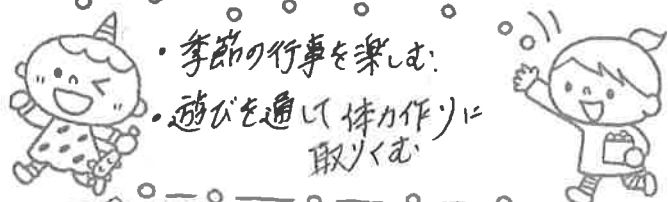 ・季節の行事を楽しむ.
・遊びを通して体力作りに
取りくむ